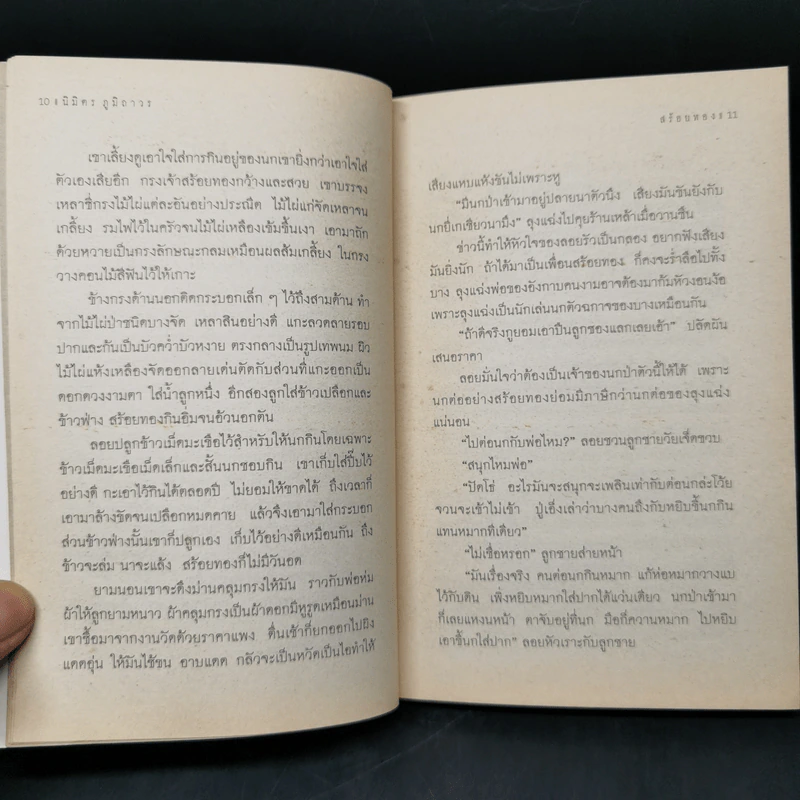 10 ๏ นิมิตร ภูมิถาวร
เขาเลี้ยงดูเอาใจใส่การกินอยู่ของนกเขายิ่งกว่าเอาใจใส่
ตัวเองเสียอีก กรงเจ้าสร้อยทองกว้างและสวย เขาบรรจง
เหลาซี่กรงไม้ไผ่แต่ละอันอย่างประณีต ไม้ไผ่แก่จัดเหลาจน
เกลี้ยง รมไฟไว้ในครัวจนไม้ไผ่เหลืองเข้มขึ้นเงา เอามาถัก
ด้วยหวายเป็นกรงลักษณะกลมเหมือนผลส้มเกลี้ยง ในกรง
วางคอนไม้สีฟันไว้ให้เกาะ
ข้างกรงด้านนอกติดกระบอกเล็ก ๆ ไว้ถึงสามด้าน ทำ
จากไม้ไผ่ป่าชนิดบางจัด เหลาสินอย่างดี แกะลวดลายรอบ
ปากและก้นเป็นบัวคว่ำบัวหงาย ตรงกลางเป็นรูปเทพนม ผิว
ไม้ไผ่แห้งเหลืองจัดออกลายเด่นตัดกับส่วนที่แกะออกเป็น
ดอกดวงงามตา ใส่น้ำลูกหนึ่ง อีกสองลูกใส่ข้าวเปลือกและ
ข้าวฟ่าง สร้อยทองกินอิ่มจนอ้วนอกตัน
ลอยปลูกข้าวเม็ดมะเขือไว้สำหรับให้นกกินโดยเฉพาะ
ข้าวเม็ดมะเขือเม็ดเล็กและสั้นนกชอบกิน เขาเก็บใส่ปี๊บไว้
อย่างดี กะเอาไว้กินได้ตลอดปี ไม่ยอมให้ขาดได้ ถึงเวลาก็
เอามาล้างขัดจนเปลือกหมดคาย แล้วจึงเอามาใส่กระบอก
ส่วนข้าวฟ่างนั้นเขาก็ปลูกเอง เก็บไว้อย่างดีเหมือนกัน ถึง
ข้าวจะล่ม นาจะแล้ง สร้อยทองก็ไม่มีวันอด
ยามนอนเขาจะดึงม่านคลุมกรงให้มัน ราวกับพ่อห่ม
ผ้าให้ลูกยามหนาว ผ้าคลุมกรงเป็นผ้าดอกมีหูรูดเหมือนม่าน
เขาซื้อมาจากงานวัดด้วยราคาแพง ตื่นเช้าก็ยกออกไปผึ่ง
แดดอุ่น ให้มันไซ้ขน อาบแดด กลัวจะเป็นหวัดเป็นไอทำให้
สร้อยทอง ๏ 11
เสียงแหบแห้งขันไม่เพราะหู
"มีนกป่าเข้ามาอยู่ปลายนาตัวนึง เสียงมันขันยังกับ
นกยี่เกเชียวนามึง" ลุงแฉ่งไปคุยร้านเหล้าเมื่อวานซืน
ข่าวนี้ทำให้หัวใจของลอยรัวเป็นกลอง อยากฟังเสียง
มันยิ่งนัก ถ้าได้มาเป็นเพื่อนสร้อยทอง ก็คงจะร่ำลือไปทั้ง
บาง ลุงแฉ่งพ่อของยังกาบคนงามอาจต้องมาก้มหัวงอนง้อ
เพราะลุงแฉ่งเป็นนักเล่นนกตัวฉกาจของบางเหมือนกัน
"ถ้าดีจริงกูยอมเอาปืนลูกซองแลกเลยเอ้า" ปลัดผัน
เสนอราคา
ลอยมั่นใจว่าต้องเป็นเจ้าของนกป่าตัวนี้ให้ได้ เพราะ
นกต่ออย่างสร้อยทองย่อมมีภาษีกว่านกต่อของลุงแฉ่ง
แน่นอน
"ไปต่อนกกับพ่อไหม?" ลอยชวนลูกชายวัยเจ็ดขวบ
"สนุกไหมพ่อ"
"ปัดโธ่ อะไรมันจะสนุกจะเพลินเท่ากับต่อนกล่ะโว้ย
จวนจะเข้าไม่เข้า ปู่เอ็งเล่าว่าบางคนถึงกับหยิบขี้นกกิน
แทนหมากทีเดียว"
"ไม่เชื่อหรอก" ลูกชายส่ายหน้า
"มันเรื่องจริง คนต่อนกกินหมาก แก้ห่อหมากวางแบ
ไว้กับดิน เพิ่งหยิบหมากใส่ปากได้แว่นเดียว นกป่าเข้ามา
ก็เลยแหงนหน้า ตาจับอยู่ที่นก มือก็ควานหมาก ไปหยิบ
เอาขี้นกใส่ปาก" ลอยหัวเราะกับลูกชาย